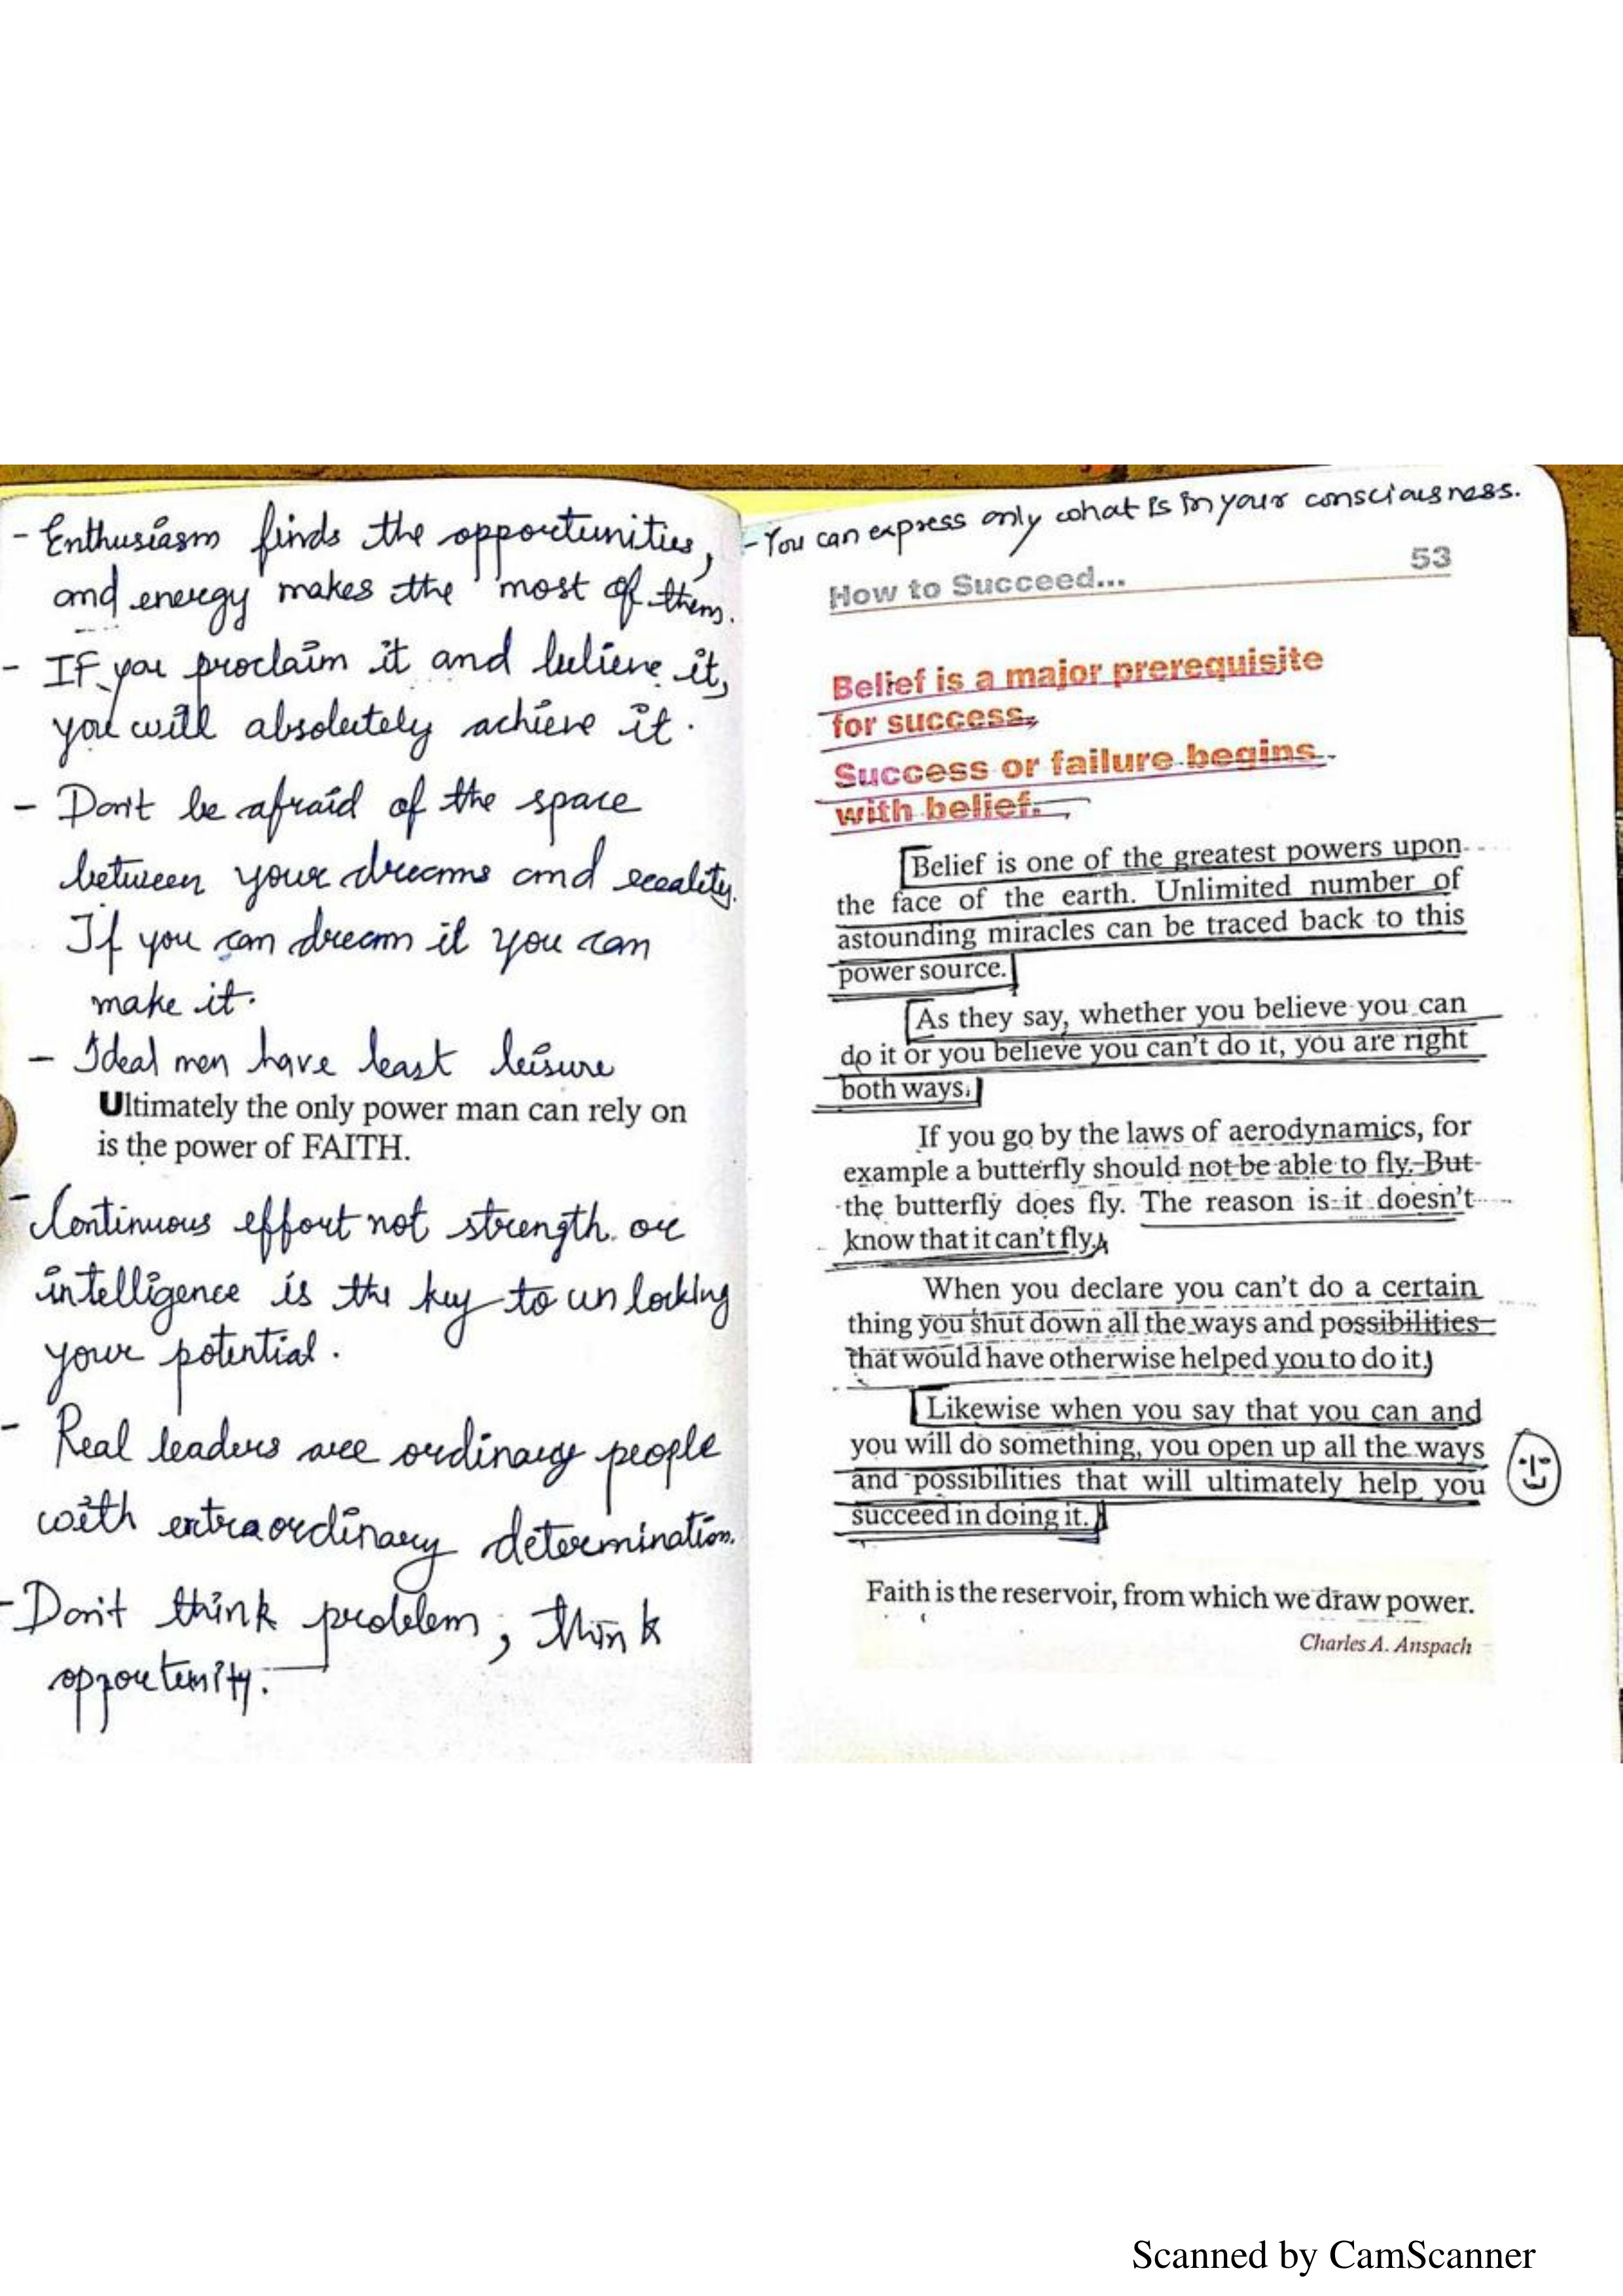 - Enthusiasm finds the opportunities,
and energy makes the most of them.
- IF you proclaim it and believe it,
you will absolutely achieve it.
- Don't be afraid of the space
between your dreams and reality.
If you can dream it you can
make it.
- Ideal men have least leisure
Ultimately the only power man can rely on
is the power of FAITH.
- Continuous effort not strength or
intelligence is the key to unlocking
your potential.
- Real leaders are ordinary people
with extraordinary determination.
- Don't think problem, think
opportunity.
- You can express only what is in your consciousness.
53
How to Succeed...
Belief is a major prerequisite
for success.
Success or failure begins
with belief.
Belief is one of the greatest powers upon
the face of the earth. Unlimited number of
astounding miracles can be traced back to this
power source.
As they say, whether you believe you can
do it or you believe you can't do it, you are right
both ways.
If you go by the laws of aerodynamics, for
example a butterfly should not be able to fly. But
the butterfly does fly. The reason is it doesn't
know that it can't fly.
When you declare you can't do a certain
thing you shut down all the ways and possibilities
that would have otherwise helped you to do it.
Likewise when you say that you can and
you will do something, you open up all the ways
and possibilities that will ultimately help you
succeed in doing it.
Faith is the reservoir, from which we draw power.
Charles A. Anspach
Scanned by CamScanner